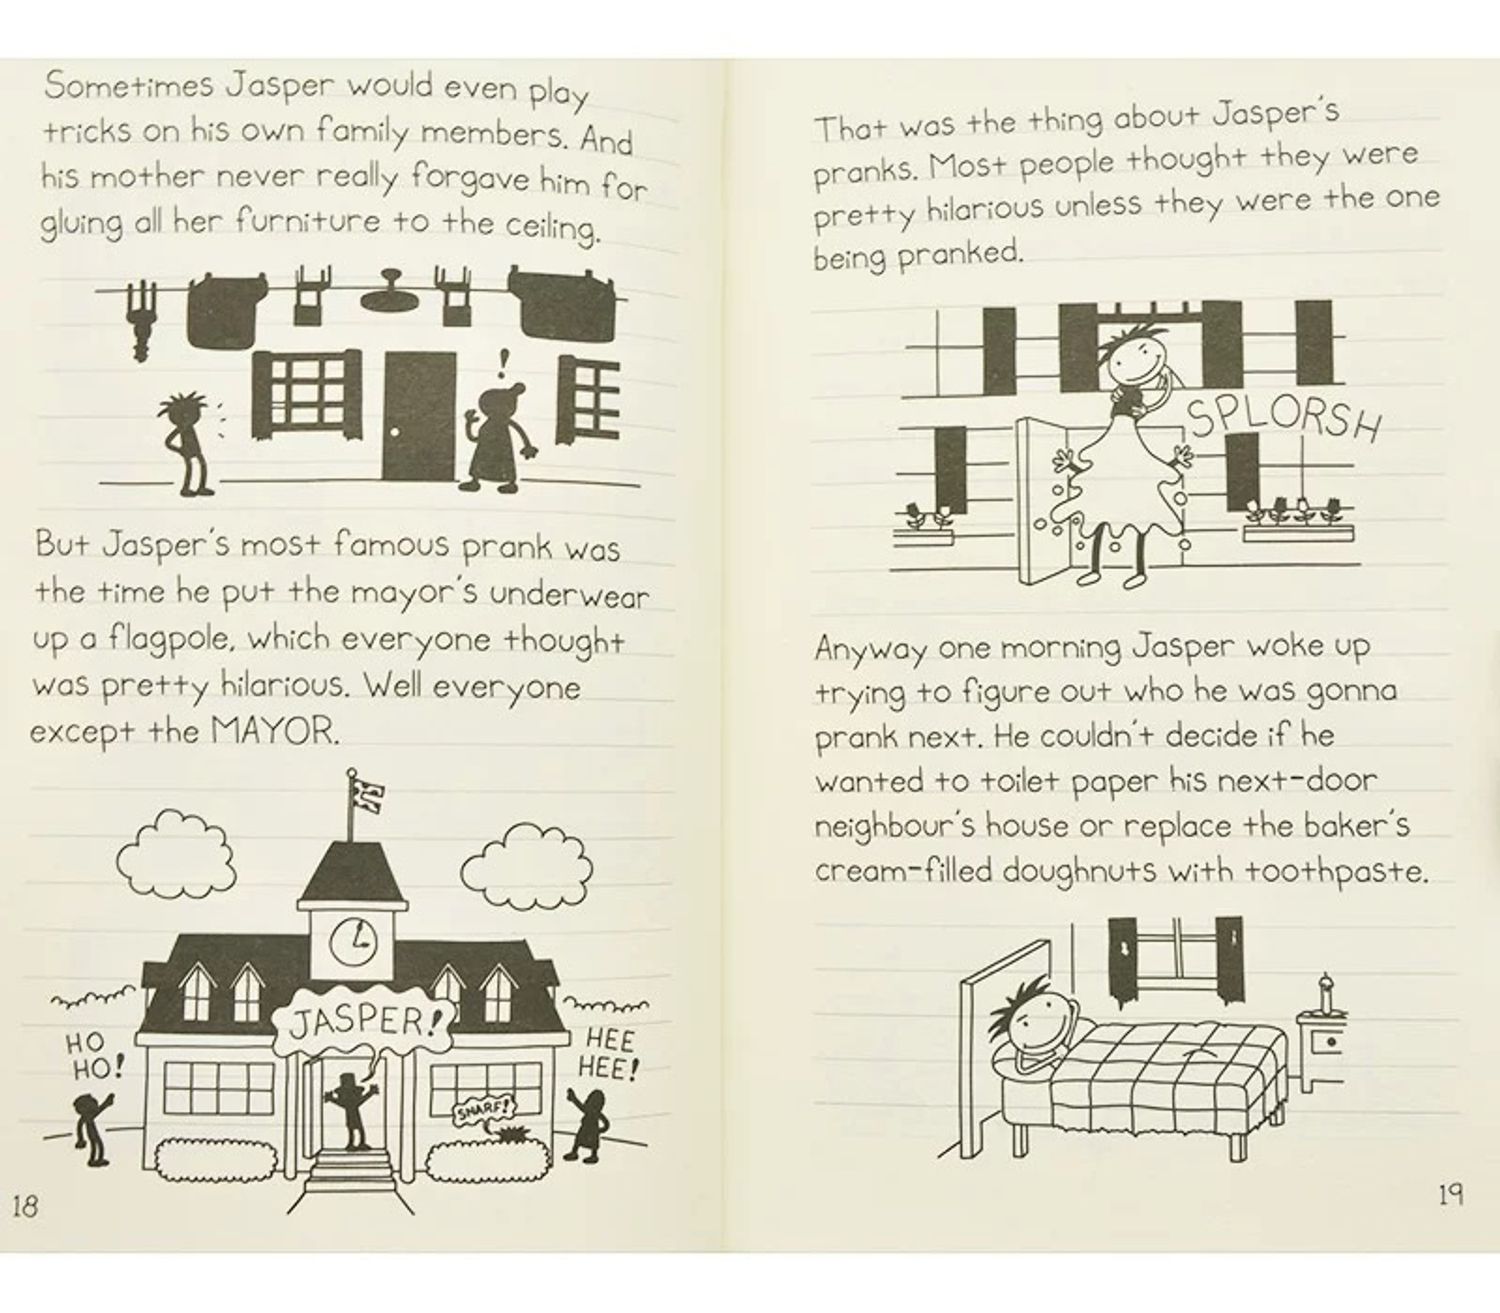 Sometimes Jasper would even play
tricks on his own family members. And
his mother never really forgave him for
gluing all her furniture to the ceiling.
!
But Jasper's most famous prank was
the time he put the mayor's underwear
up a flagpole, which everyone thought
was pretty hilarious. Well everyone
except the MAYOR.
JASPER!
HO
HO!
HEE
HEE!
SNARF!
18
That was the thing about Jasper's
pranks. Most people thought they were
pretty hilarious unless they were the one
being pranked.
SPLORSH
Anyway one morning Jasper woke up
trying to figure out who he was gonna
prank next. He couldn't decide if he
wanted to toilet paper his next-door
neighbour's house or replace the baker's
cream-filled doughnuts with toothpaste.
19